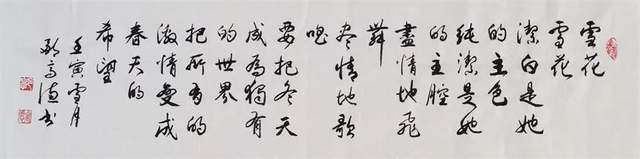 雪花
雪花
洁白是她
的主色
纯洁是她
的主腔
尽情地飞
舞
尽情地歌
唱
要把冬天
成为独有
的世界
把所有的
激情变成
春天的
希望
壬寅雪月